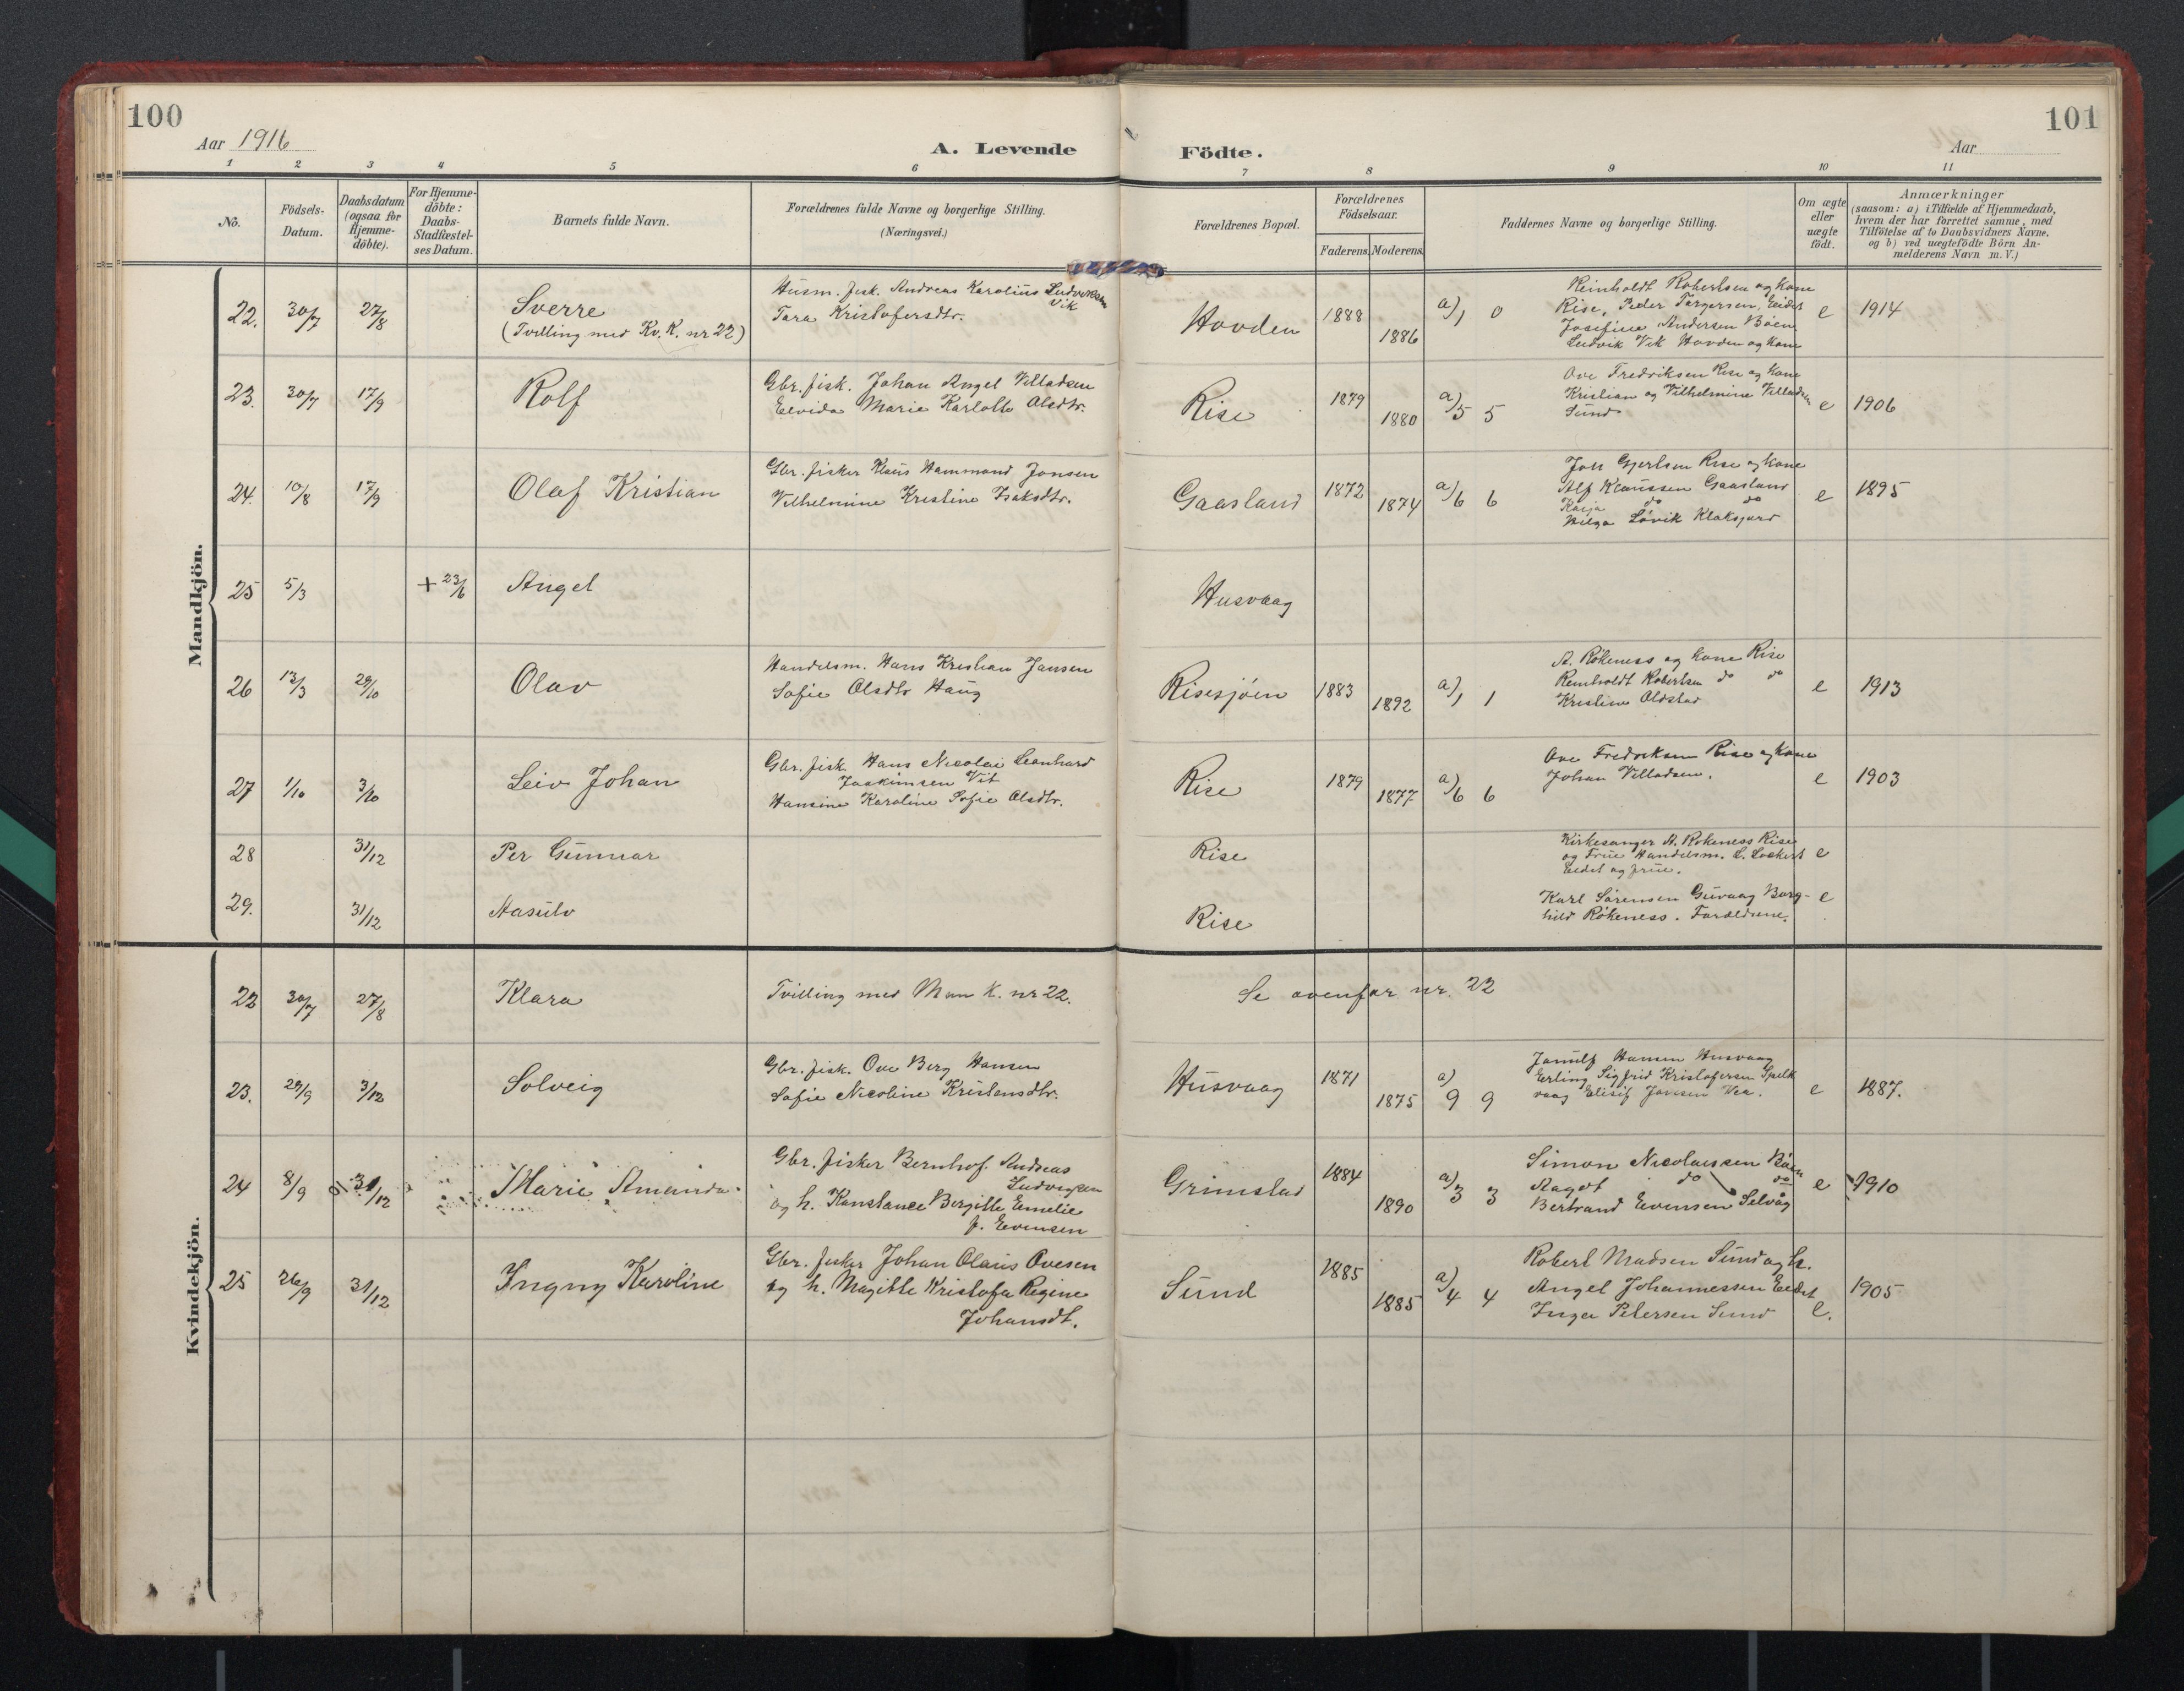 100
101
Aar 1916
A. Levende Födte.
Aar
1 2 3 4 5 6 7 8 9 10 11
No.
Födsels-
Datum.
Daabsdatum
(ogsaa for
Hjemme-
döbte).
For Hjemme-
döbte:
Daabs-
Stadfæstel-
ses Datum.
Barnets fulde Navn.
Forældrenes fulde Navne og borgerlige Stilling.
(Næringsvei.)
Forældrenes Bopæl.
Forældrenes
Födselsaar.
Faderens. Moderens.
Faddernes Navne og borgerlige Stilling.
Om ægte
eller
uægte
födt.
Anmærkninger
(saasom: a) i Tilfælde af Hjemmedaab,
hvem der har forrettet samme, med
Tilföielse af to Daabsvidners Navne,
og b) ved uægtefödte Börn An-
melderens Navn m.V.)
Mandkjön.
22. 30/7 27/8
Sverre
(Tvilling med Kv. K. nr 22)
Husm. fisk. Andreas Karolius Ludviksen
Vik
Tara Kristofersdtr.
Hovden 1888 1886 a) 1 0
Reinholdt Robertsen og kone
Rise, Peder Torgersen, Eidet
Josefine Andersen Böen
Ludvik Vik Hovden og kone
e 1914
23. 30/7 17/9
Rolf
Gbr. fisk. Johan Angel Villadsen
Elvida Marie Karlotte Olsdtr.
Rise 1879 1880 a) 5 5
Ove Fredriksen Rise og kone
Kristian og Vilhelmine Villadsen
Sund
e 1906
24. 10/8 17/9
Olaf Kristian
Gbr. fisker Klaus Hammond Jonsen
Vilhelmine Kristine Isaksdtr.
Gaasland 1872 1874 a) 6 6
Joh Gjertsen Rise og kone
Alf Klaussen Gaasland
Kaija do do
Helga Lövik Klaksjord
e 1895
25 5/3 + 23/6
Angel
Husvaag
26 13/3 29/10
Olav
Handelsm. Hans Kristian Jansen
Sofie Olsdtr Haug
Risesjöen 1883 1892 a) 1 1
A. Rökeness og kone Rise
Reinholdt Robertsen do do
Kristine Oldstad
e 1913
27 1/10 3/10
Leiv Johan
Gbr. fisk Hans Nicolai Leonhard
Joakimsen Vit
Hansine Karoline Sofie Olsdtr.
Rise 1879 1877 a) 6 6
Ove Fredriksen Rise og kone
Johan Villadsen.
e 1903
28 31/12
Per Gunnar
Rise
Kirkesanger A. Rökeness Rise
og Frue Handelsm. L. Lockert
Eidet og frue.
e
29. 31/12
Aasulv
Rise
Karl Sörensen Guvaag Borg-
hild Rökeness. Foreldrene.
e
Kvindekjön.
22 30/7 27/8
Klara
Tvilling med Man K. nr 22.
Se ovenfor nr. 22
23. 29/9 3/12
Solveig
Gbr. fisk. Ove Berg Hansen
Sofie Nicoline Kristensdtr.
Husvaag 1871 1875 a) 9 9
Hansen Husvaag
Erling Sigfrid Kristofersen Spelk
vaag Elisif Jonsen Vea.
e 1887.
24 8/9 31/12
Marie Amanda
Gbr. fisker Bernhof. Andreas
Ludvigsen
og h. Konstance Bergitte Emelie
f. Evensen
Grimstad 1884 1890 a) 3 3
Simon Nicolaissen Böen
Aagot do do
Bertrand Evensen Selvåg
e 1910
25 26/9 31/12
Ingny Karoline
Gbr. fisker Johan Olaus Ovesen
og h. Magitte Kristofa Regine
Johansdt.
Sund 1885 1885 a) 4 4
Robert Madsen Sund og h.
Angel Johannessen Eidet
Inga Petersen Sund
e. 1905